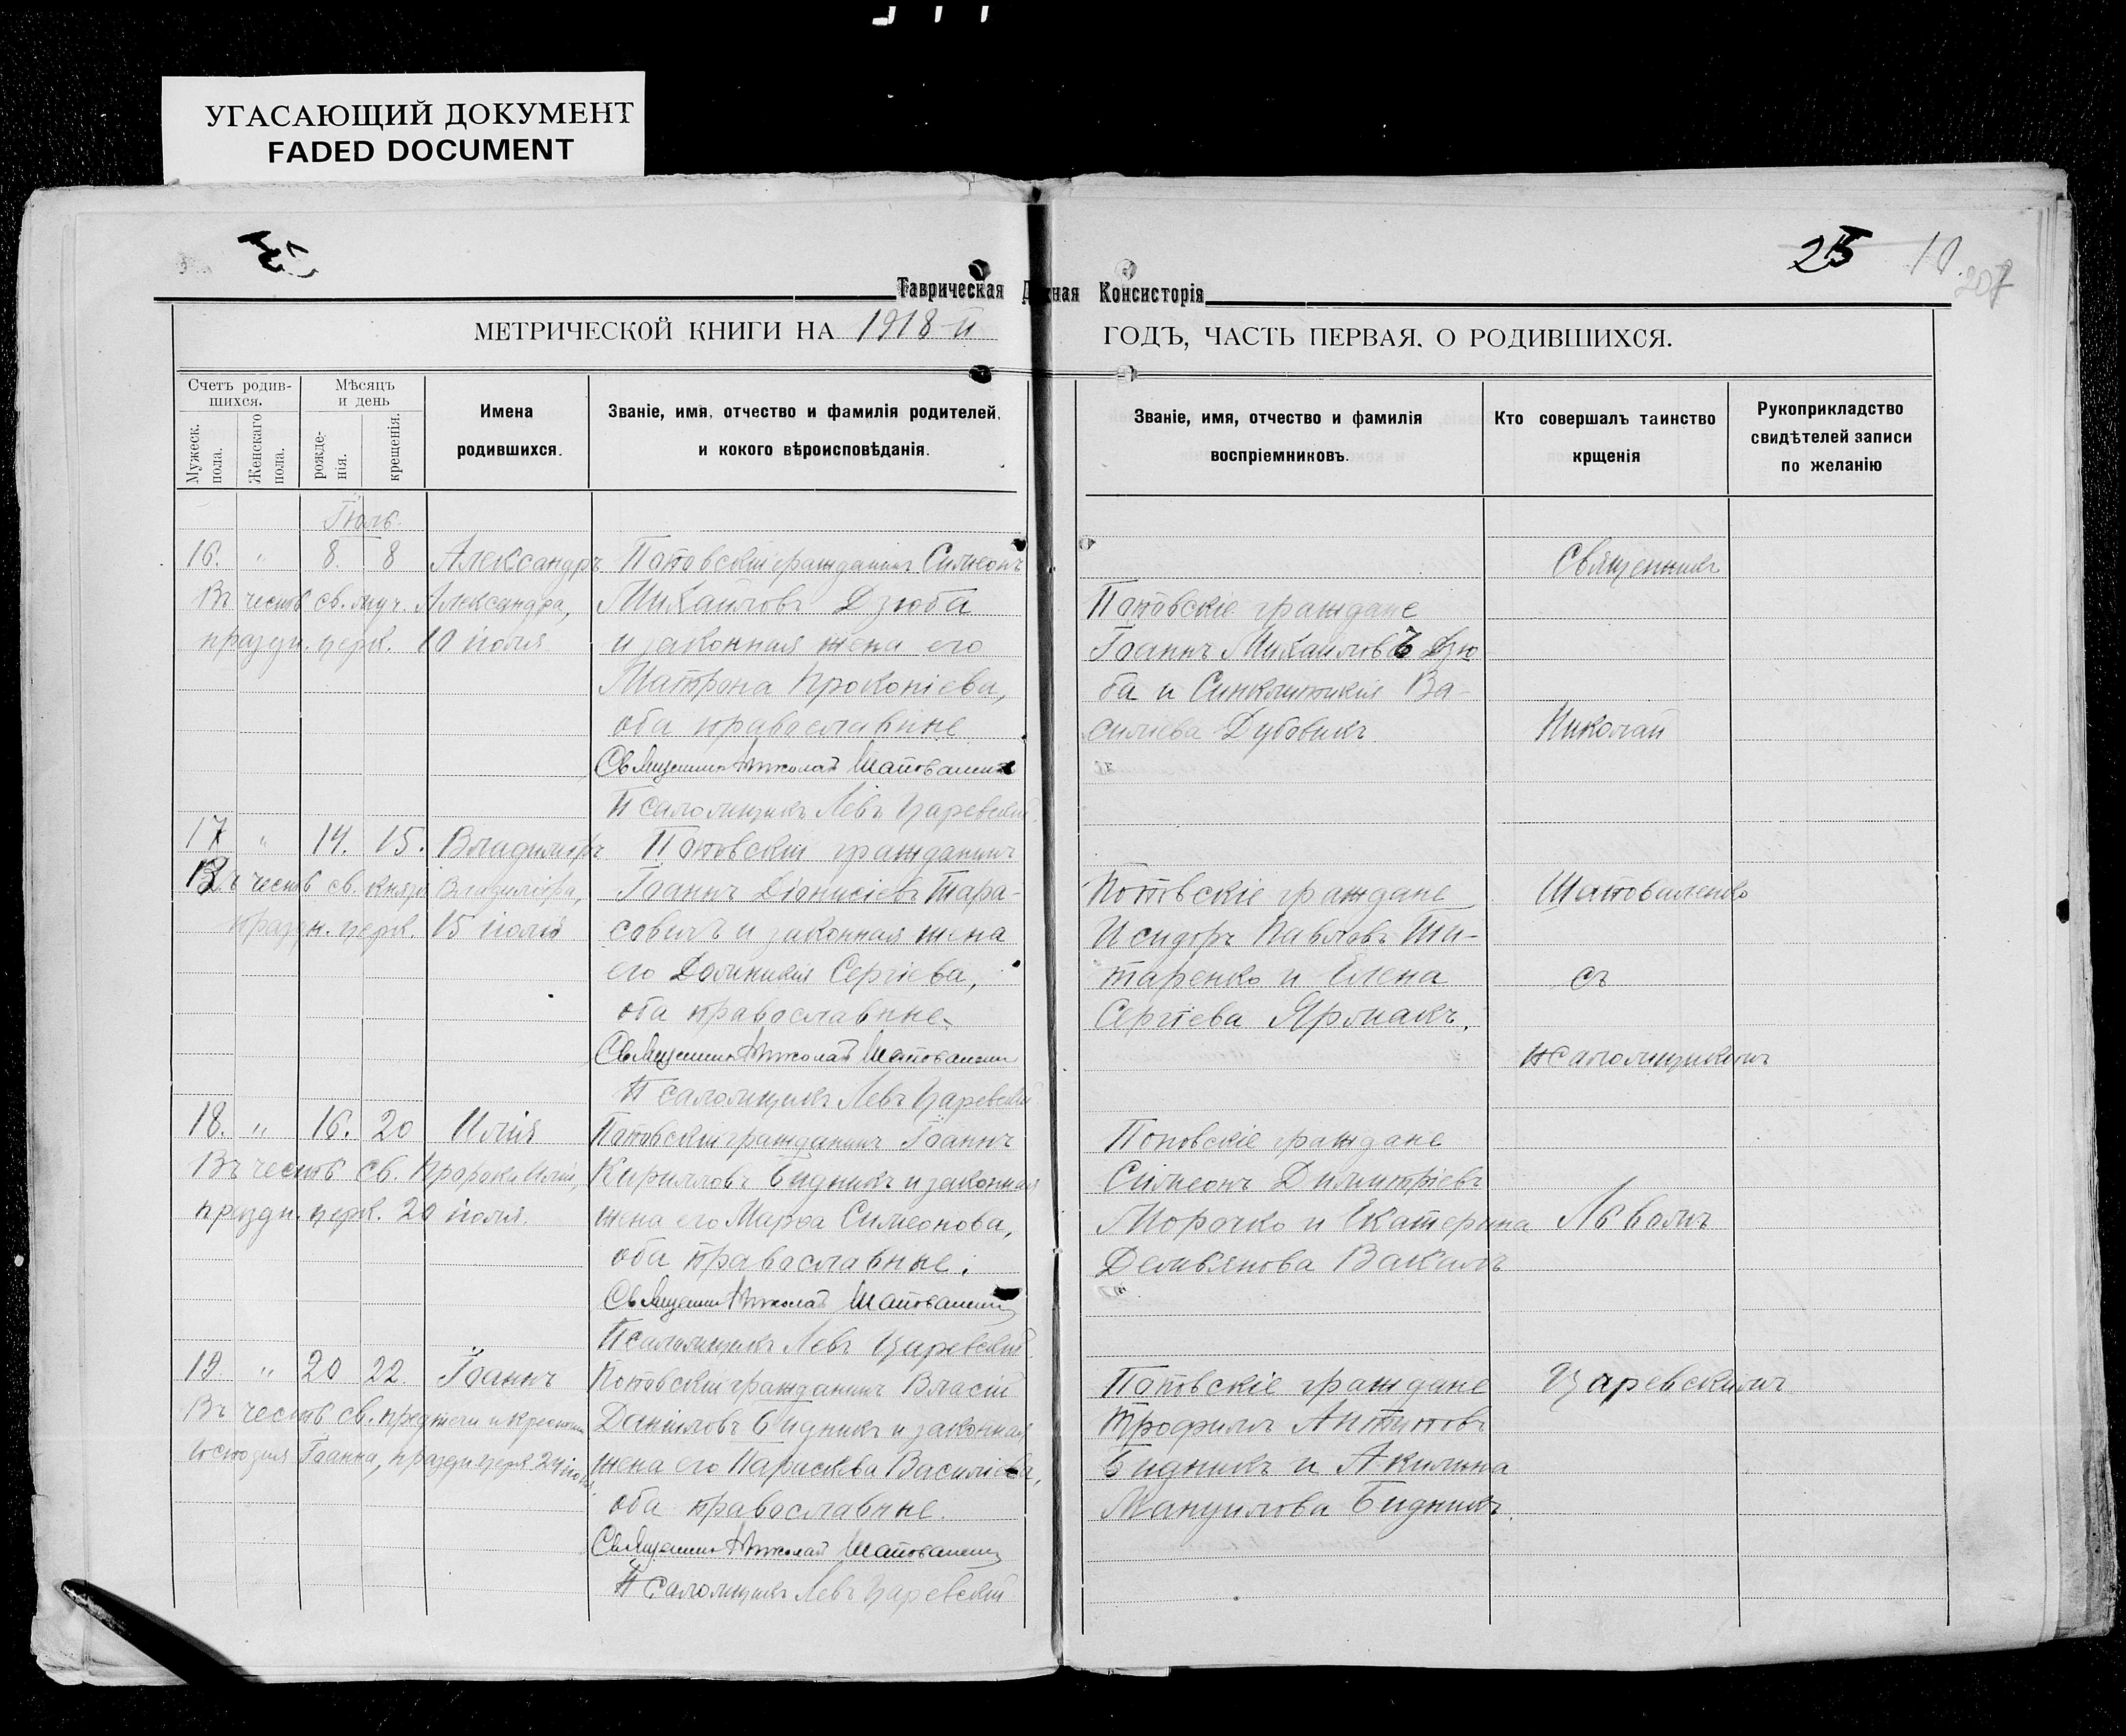 УГАСАЮЩИЙ ДОКУМЕНТ
FADED DOCUMENT
25 10.
207
Таврическая Духовная Консисторія
МЕТРИЧЕСКОЙ КНИГИ НА 1918-й
ГОДЪ, ЧАСТЬ ПЕРВАЯ, О РОДИВШИХСЯ.
Счетъ родив-
шихся.
Мужеск. пола.
Женскаго пола.
Мѣсяцъ
и день
рожде-
нія.
крещенія.
Имена
родившихся.
Званіе, имя, отчество и фамилія родителей,
и кокого вѣроисповѣданія.
Званіе, имя, отчество и фамилія
воспріемниковъ.
Кто совершалъ таинство
крщенія
Рукоприкладство
свидѣтелей записи
по желанію
Іюль.
16. " 8. 8 Александръ
Въ честь св. муч. Александра,
праздн. церк. 10 іюля
Поповскій гражданинъ Симеонъ
Михаиловъ Дзюба
и законная жена его
Матрона Прокопіева,
оба православные
Священник Николай Шаповаленко
Псаломщикъ Левъ Царевскій.
Поповскіе граждане
Іоаннъ Михаиловъ Дзю
ба и Синклитикія Ва-
силіева Дубовикъ
17 " 14. 15. Владиміръ
Въ честь св. князя Владиміра,
праздн. церк. 15 іюля
Поповскій гражданинъ
Іоаннъ Діонисіевъ Тара-
и законная жена
его Домникія Сергіева,
оба православные.
Священник Николай Шаповаленко
Псаломщикъ Левъ Царевскій
Поповскіе граждане
Исидоръ Павловъ Ти-
таренко и Елена
Сергіева Ярмакъ.
18. " 16. 20 Илія
Въ честь св. Пророка Иліи,
праздн. церк. 20 іюля.
Поповскій гражданинъ Іоаннъ
Кирилловъ Бидникъ и законная
жена его Марѳа Симеонова,
оба православные.
Священник Николай Шаповаленко
Псаломщикъ Левъ Царевскій.
Поповскіе граждане
Симеонъ Димитріевъ
и Екатерина
19. " 20 22. Іоаннъ
Въ честь св. предтечи и крестителя
Господня Іоанна, праздн. церк. 24
Поповскій гражданинъ Власій
Даніиловъ Бидникъ и законная
жена его Параскева Василіева,
оба православные.
Священник Николай Шаповаленко
Псаломщикъ Левъ Царевскій
Поповскіе граждане
Трофимъ Антиповъ
Бидникъ и Акилина
Мануилова Бидникъ.
Священникъ
Николай
Шаповаленко
съ
псаломщикомъ
Львомъ
Царевскимъ